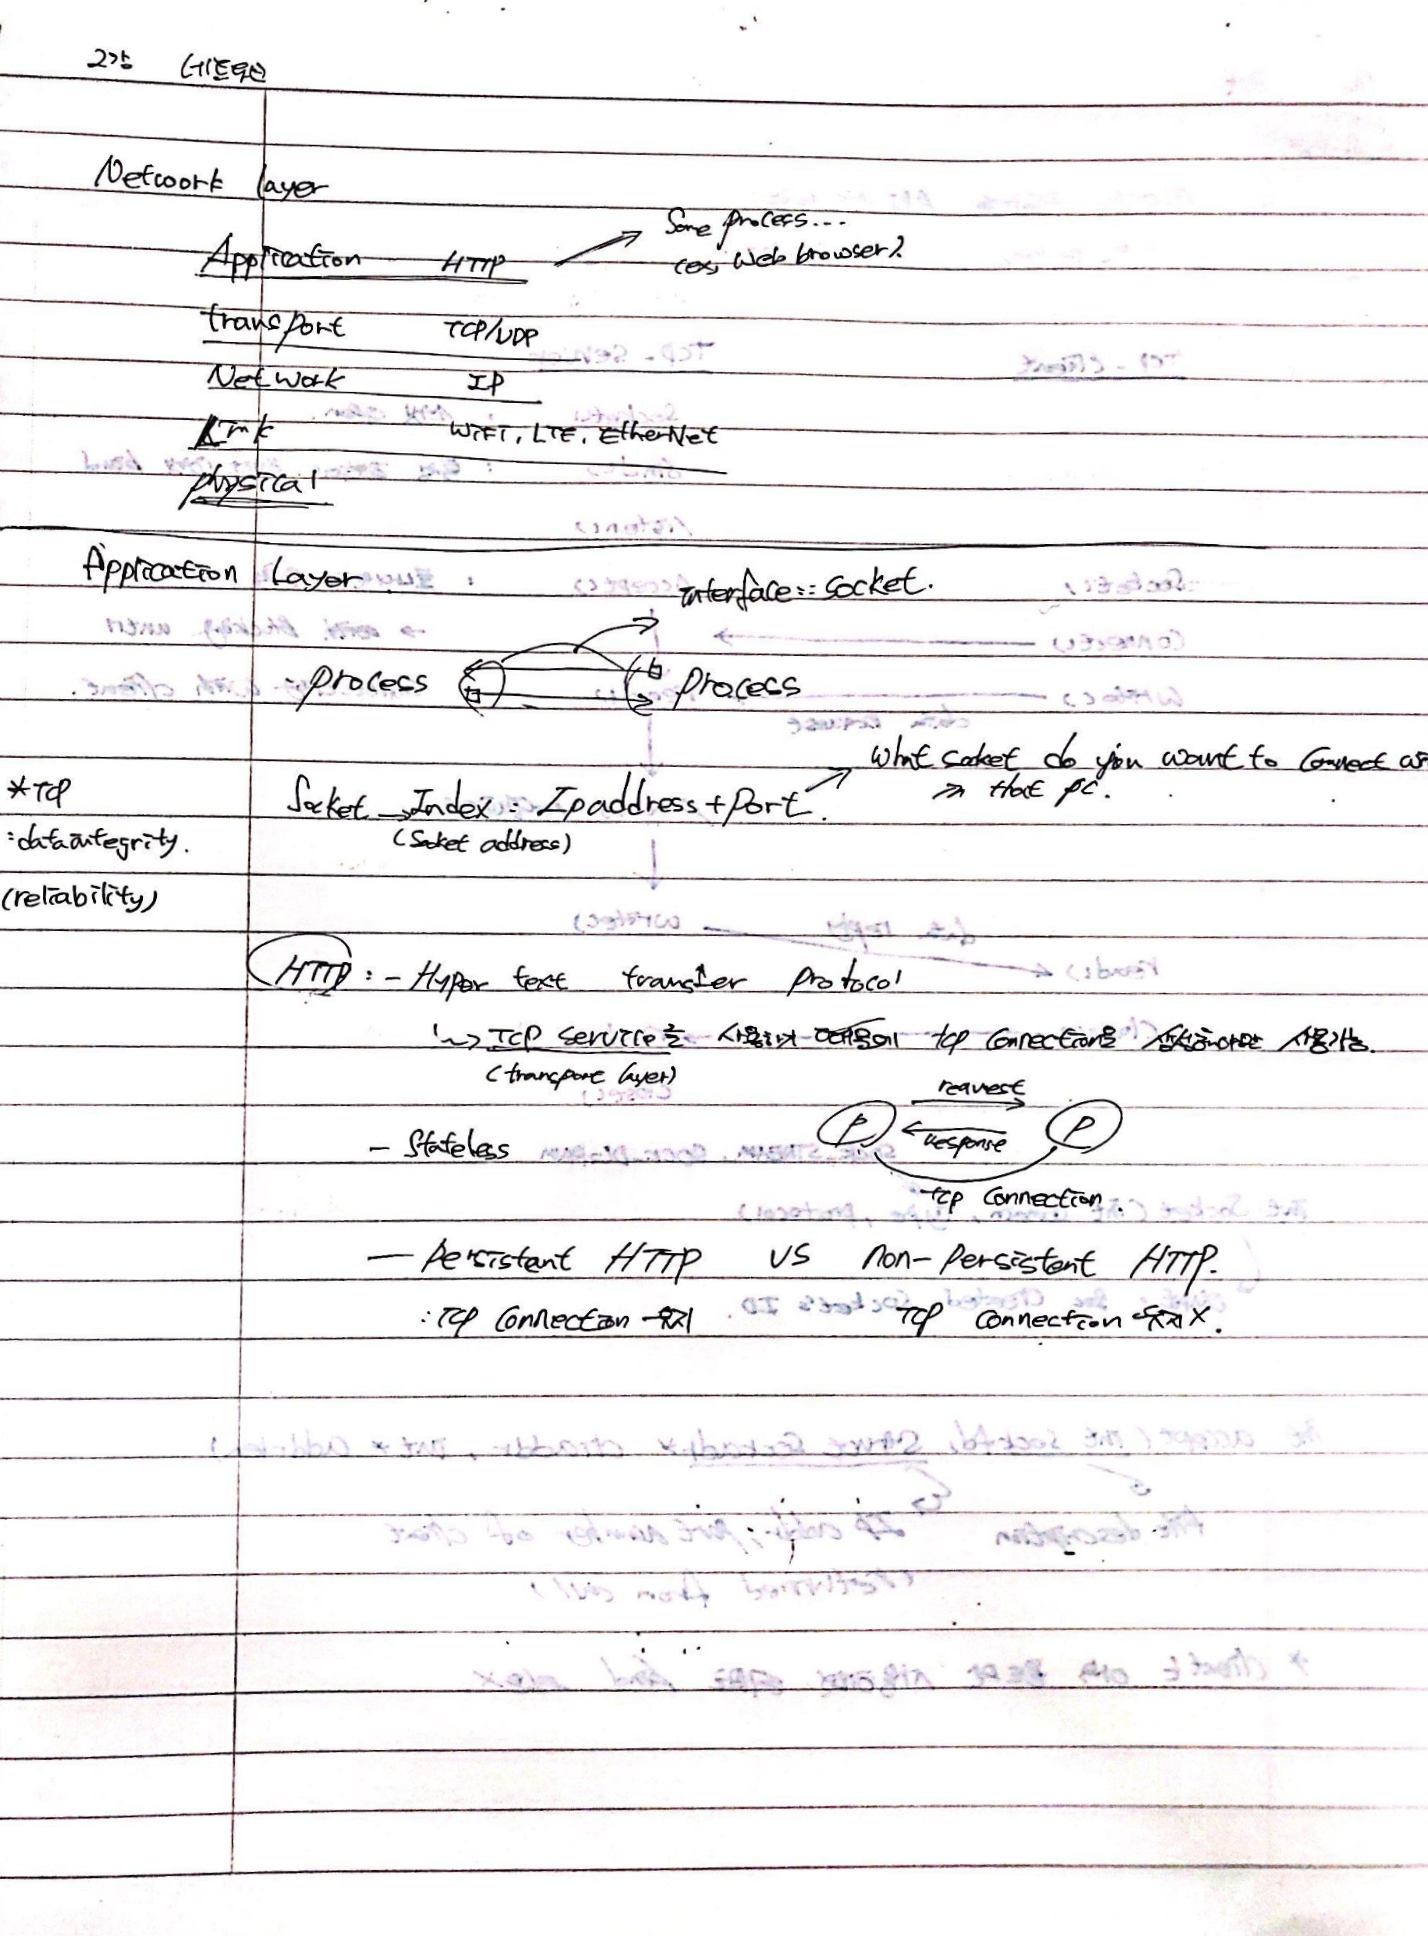 2강 네트워크
Network layer
Application HTTP → Some process...
(ex, Web browser)
transport TCP/UDP
Network IP
Link WIFI, LTE, EtherNet
physical
Application Layer
interface:: socket.
process process
What socket do you want to connect
that pc.
*TCP
:data integrity.
(reliability)
Socket → Index : Ip address + port.
(Socket address)
HTTP : - Hyper text transfer protocol
↳ TCP service를 사용하기 때문에 tcp connection을 해야만 사용가능.
(transport layer)
request
P P
response
- Stateless
TCP Connection.
- persistent HTTP VS non-persistent HTTP.
: TCP Connection 유지 TCP connection 유지 X.